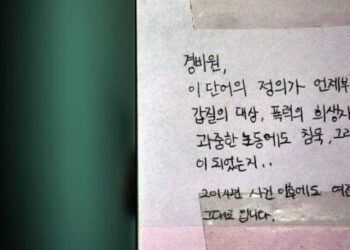 경비원,
이 단어의 정의가 언제부
갑질의 대상, 폭력의 희생자
과중한 노동에도 침묵, 그리
이 되었는지..
2014년 사건 이후에도 여전
그대로 입니다.